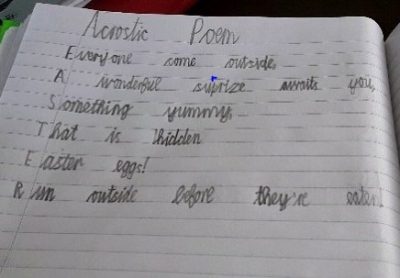 Acrostic Poem
Everyone come outside,
A wonderful suprize awaits you,
Something yummy,
That is hidden
Easter eggs!
Run outside before they're eaten!